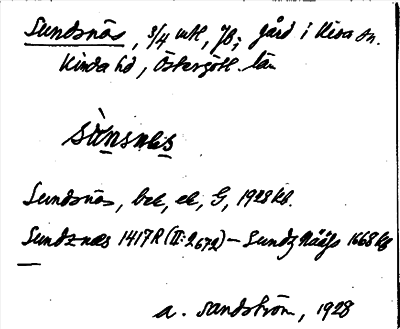 Sundsnäs, 3/4 mtl, JB; gård i Kisa sn.
Kinda hd, Östergötl. län
sùnsnɛs
Sundsnäs, bel, ek, G, 1928 kb.
Sundznæs 1417 R (II: 2672) – Sundz Nääß 1668 kb
a. Sandström, 1928